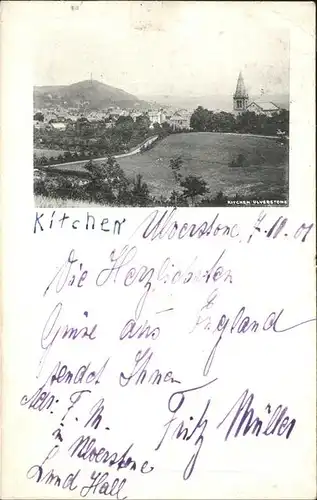 KITCHIN ULVERSTONE
Kitchen Ulverstone, 7.10.01
Die Herzlichsten
Grüse aus England
sendet Ihnen
Adr: F. M. Fritz Müller
in Ulverstone
Lund Hall